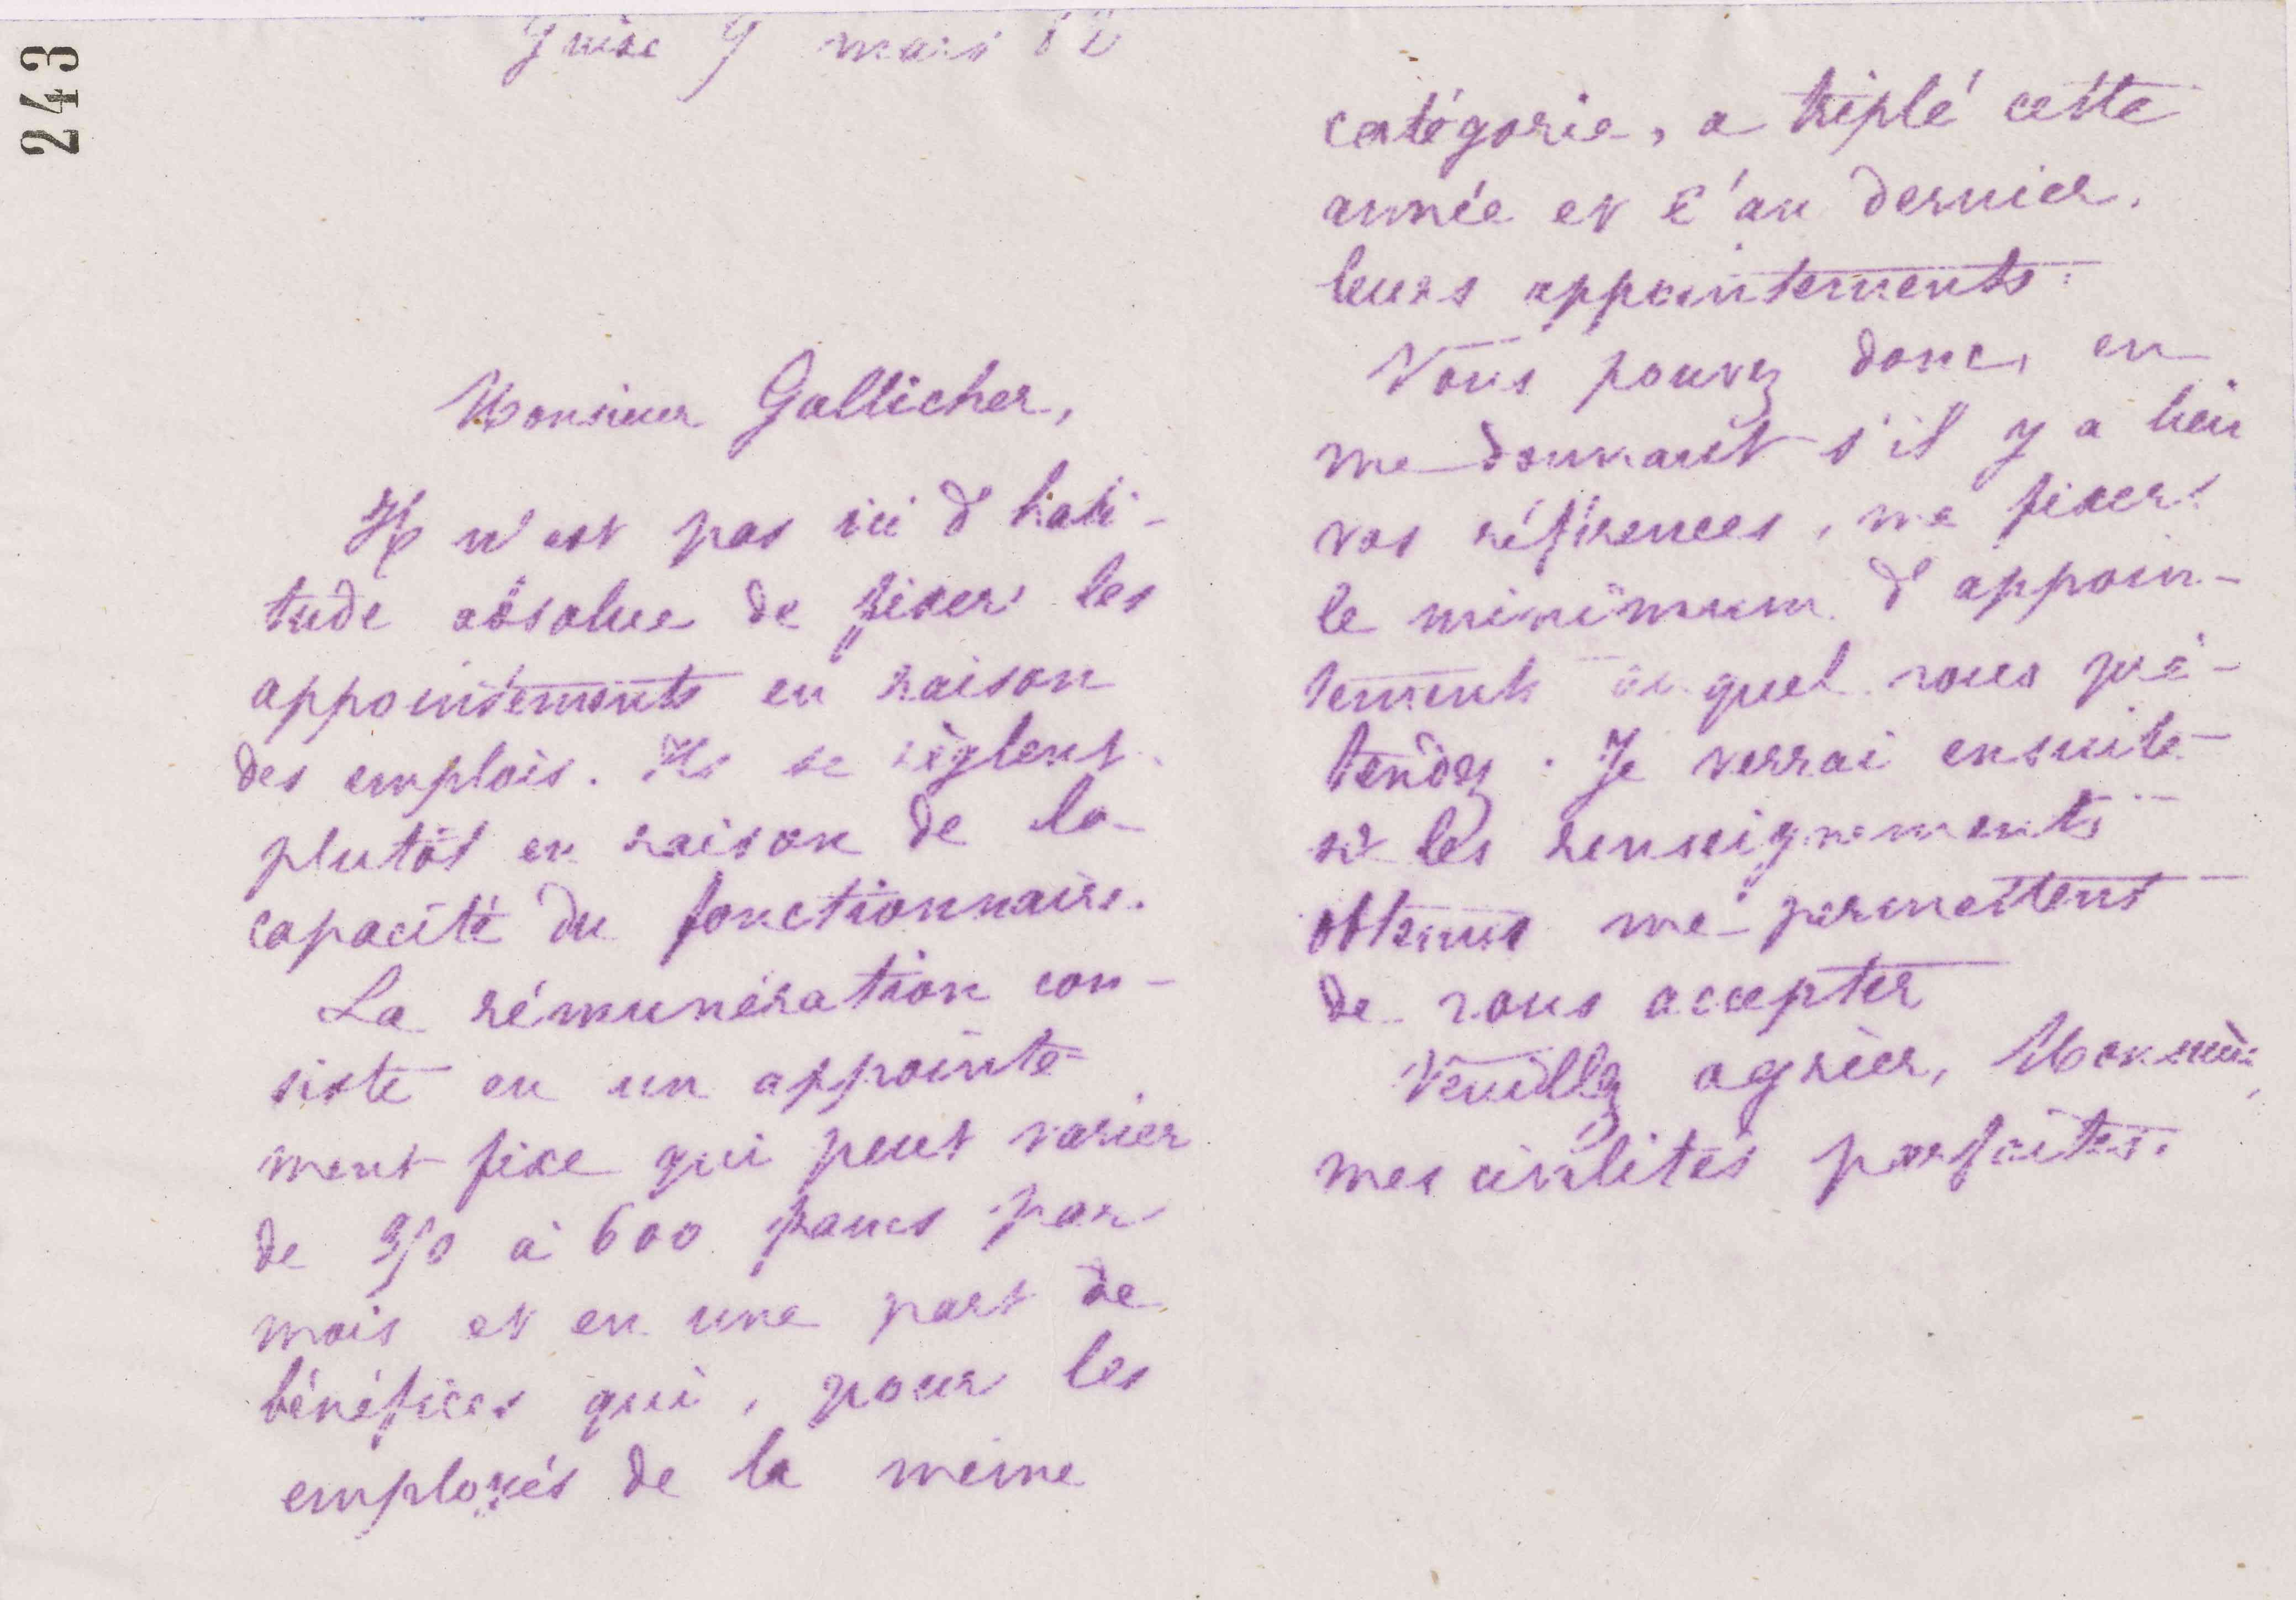 243
Guise 9 mars 82
Monsieur Gallicher,
Il n'est pas ici d'habi-
tude absolue de fixer les
appointements en raison
des emplois. Ils se règlent
plutôt en raison de la
capacité du fonctionnaire.
La rémunération con-
siste en un appointe-
ment fixe qui peut varier
de à 600 francs par
mois et en une part de
bénéfices qui, pour les
employés de la même
catégorie, a triplé cette
année et l'an dernier.
leurs appointements.
Vous pouvez donc, en
me donnant s'il y a lieu
vos références, me fixer
le minimum d'appoin-
tements auquel vous pré-
tendez. Je verrai ensuite
si les renseignements
obtenus me permettent
de vous accepter
Veuillez agréer, Monsieur,
mes civilités parfaites.